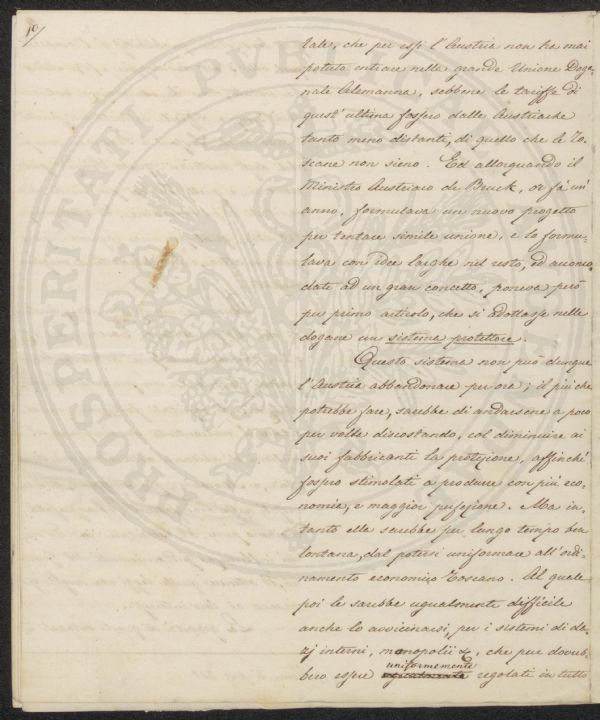 10/
tale, che per essi l'Austria non ha mai
potuto entrare nella grande Unione Doga-
nale Alemanna, sebbene le tariffe di
quest'ultima fossero dalle Austriache
tanto meno distanti, di quello che le To-
scane non sieno. Ed allorquando il
Ministro Austriaco de Bruck, or fà un'
anno, formulava un nuovo progetto
per tentare simile unione, e lo formu-
lava con idee larghe nel resto, ed accomo-
date ad un gran concetto, poneva però
per primo articolo, che si adottasse nelle
dogane un sistema protettore.
Questo sistema non può dunque
l'Austria abbandonare per ora; il più che
potrebbe fare, sarebbe di andarsene a poco
per volta discostando, col diminuire ai
suoi fabbricanti la protezione, affinché
fossero stimolati a produrre con più eco-
nomia, e maggior perfezione. Ma in-
tanto ella sarebbe per lungo tempo ben
lontana, dal potersi uniformare all'ordi-
namento economico Toscano. Al quale
poi le sarebbe ugualmente difficile
anche lo avvicinarsi, per i sistemi di da-
zj interni, monopolii &, che pur dovreb-
uniformemente
bero essere ugualmente regolati in tutto
PROSPERITATI PUBLICAE